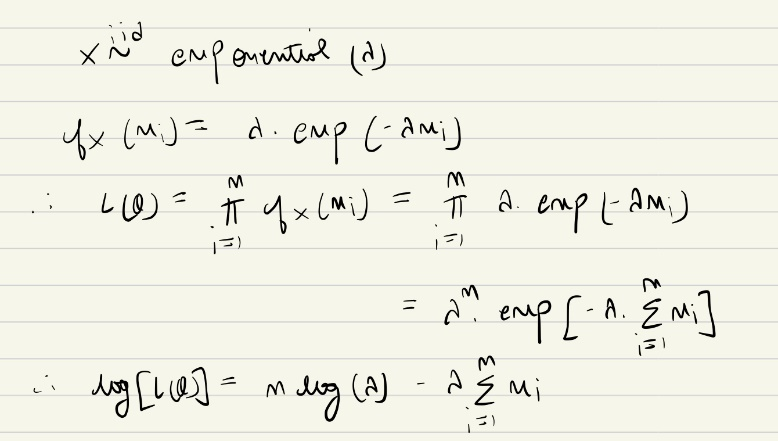 X ~iid exponential (λ)
f_X (x_i) = λ. exp (-λx_i)
∴ L(θ) = ∏_{i=1}^{n} f_X (x_i) = ∏_{i=1}^{n} λ. exp (-λx_i)
= λ^n. exp [-λ. ∑_{i=1}^{n} x_i]
∴ log[L(θ)] = n log (λ) - λ ∑_{i=1}^{n} x_i